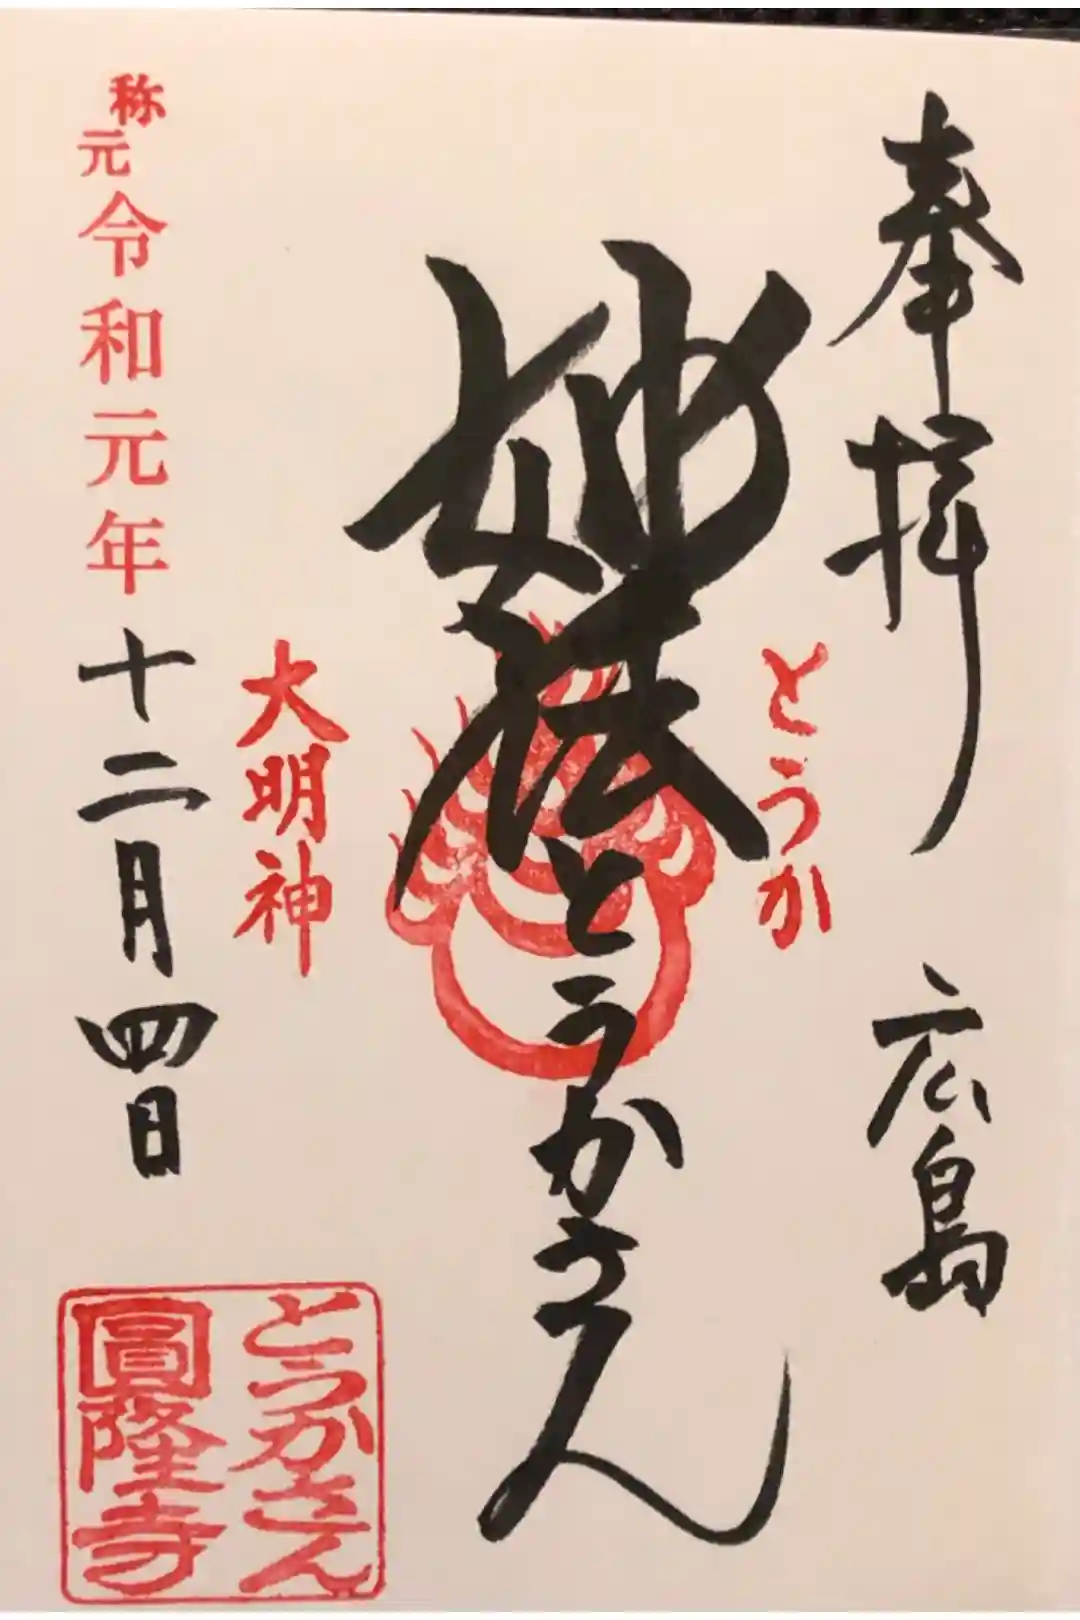 奉拝 広島
とうか
妙法とうかさん
大明神
称元
令和元年十二月四日
とうかさん
圓隆寺